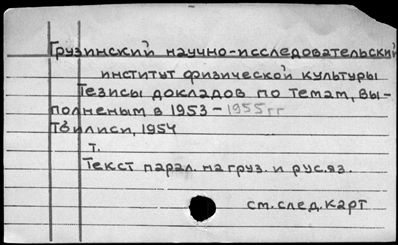 Грузинский научно-исследовательский
институт физической культуры
Тезисы докладов по темам, вы-
полненым в 1953-1955гг
Тбилиси, 1954
т.
Текст парал. на груз. и рус.яз.
см. след. карт